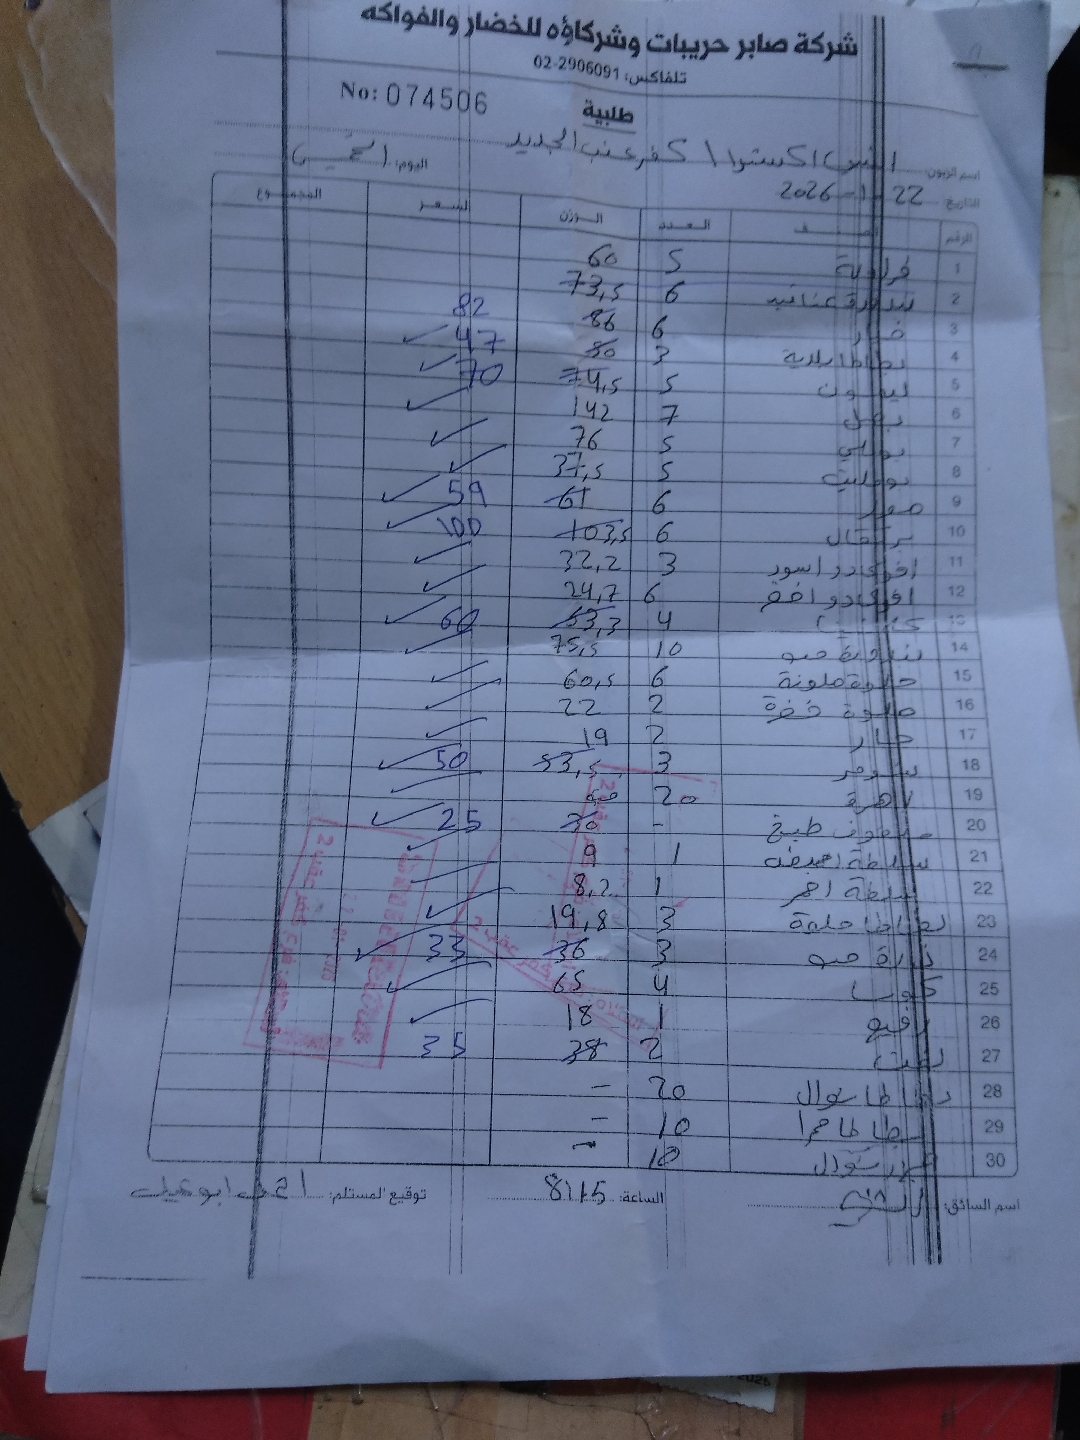 شركة صابر حريبات وشركاؤه للخضار والفواكه
تلفاكس: 02-2906091
No: 074506
طلبية
اسم الزبون: اكسترا \ كفر عقب الجديد اليوم: الخميس
التاريخ: 22-1-2026
الرقم الصنف العدد الوزن السعر المجموع
1 5 60
2 بندورة عناقيد 6 73,5
3 خيار 6 86 82
4 بطاطا بلدية 3 50 47
5 ليمون 5 74,5 70
6 بصل 7 142
7 5 76
8 5 37,5
9 موز 6 61 59
10 برتقال 6 103,5 100
11 افوكادو اسود 3 32,2
12 افوكادو اخضر 6 24,7
13 4 60
14 بندورة حب 10 75,5
15 حلوة ملونة 6 60,5
16 حلوة خضرة 2 22
17 حار 2 19
18 3 53,5 50
19 زهرة 20
20 ملفوف طبيخ - 30 25
21 سلطة ابيض 1 9
22 سلطة احمر 1 8,2
23 بطاطا حلوة 3 19,8
24 ذرة حب 3 36 33
25 كوسا 4 65
26 رفيع 1 18
27 لفت 2 38 35
28 بطاطا شوال 20 -
29 بطاطا حمرا 10 -
30 شوال 10 -
اسم السائق: الساعة: 8:15 توقيع المستلم: